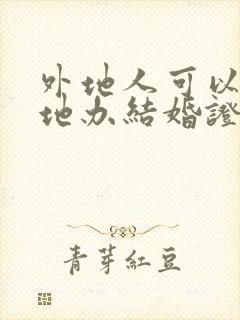 外地人可以
地办結婚證
青芽紅豆